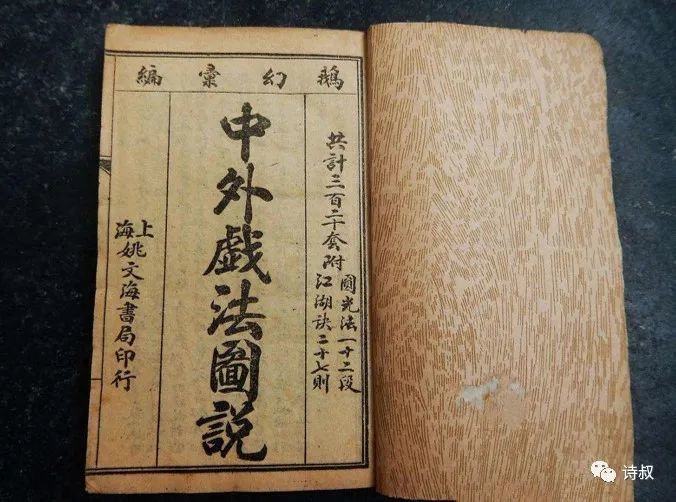 鵝幻彙編
共計三百二十套附
圓光法一十二段
江湖訣二十七則
中外戯法圖説
上海姚文海書局印行
诗叔